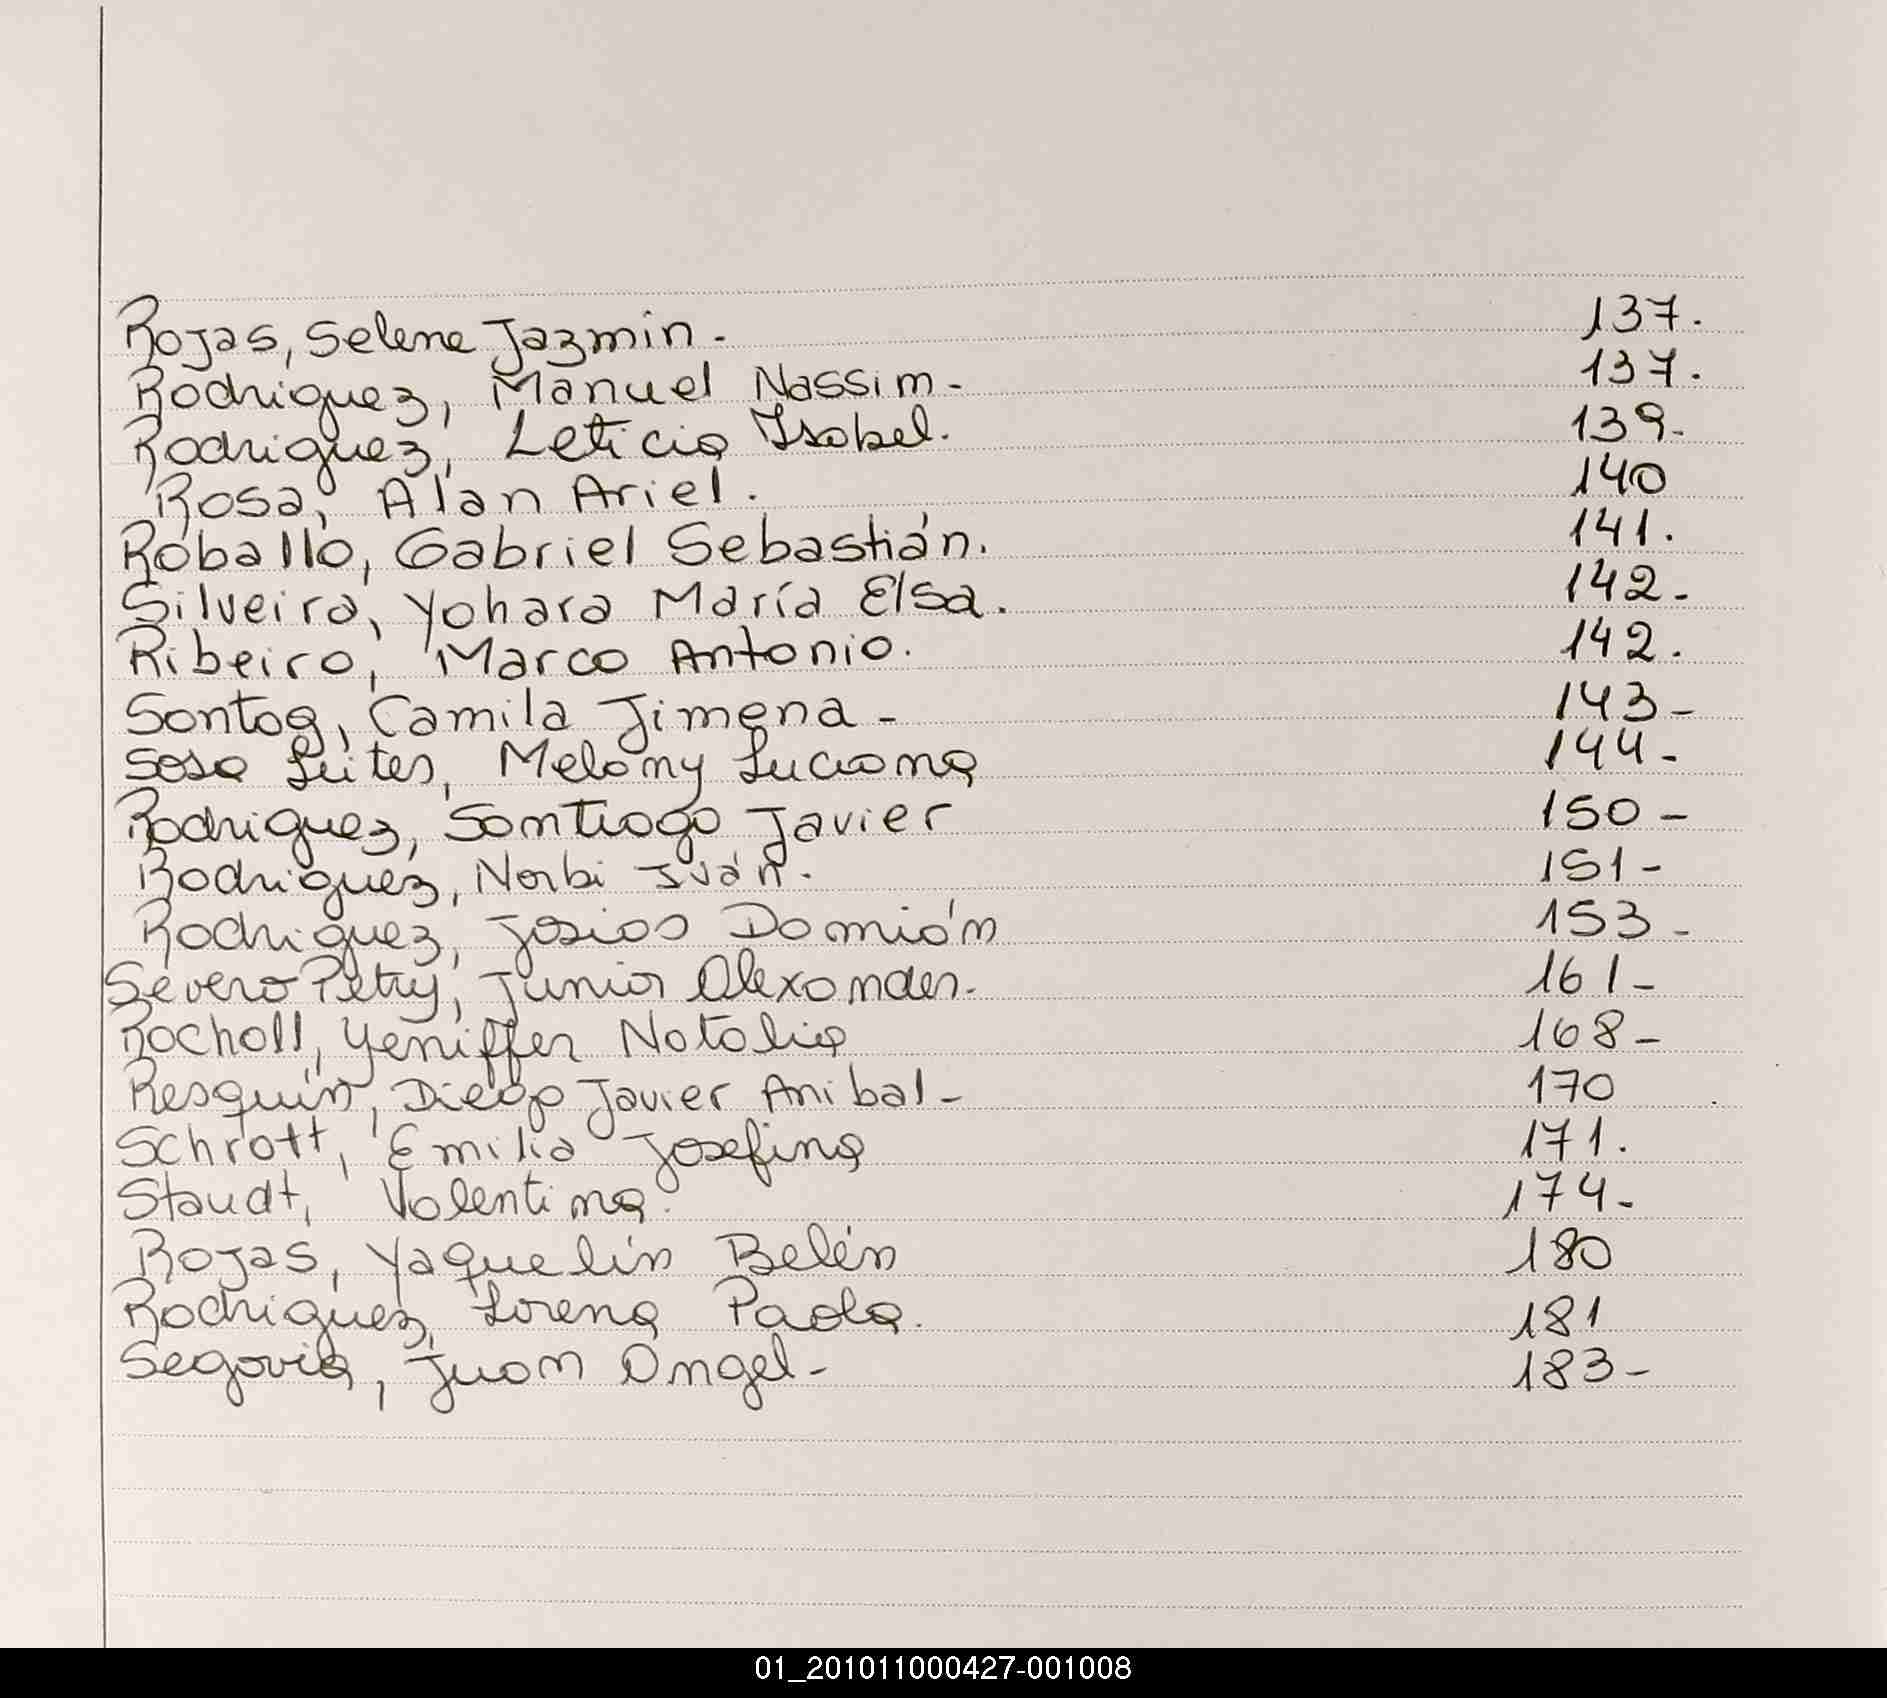 Rojas, Selene Jazmin. 137.
Rodriguez, Manuel Nassim- 137.
Rodriguez, Leticia Isabel. 139-
Rosa, Alan Ariel. 140
Roballo, Gabriel Sebastián. 141.
Silveira, Yohara María Elsa. 142-
Ribeiro, Marco Antonio. 142.
Santoa, Camila Jimena- 143-
Sosa Leites, Melany Luciana 144-
Rodriguez, Santiago Javier 150-
Rodriguez, Norbi Iván. 151-
Rodriguez, Josias Damián 153-
Severo Petry, Junior Alexander. 161-
Rocholl, Yeniffer Natalia 168-
Resquín, Diego Javier Anibal- 170
Schrott, Emilia Josefina 171.
Staudt, Valentina. 174-
Rojas, Yaquelín Belén 180
Rodriguez, Lorena Paola. 181
Segovia, Juan Angel- 183-
01_201011000427-001008